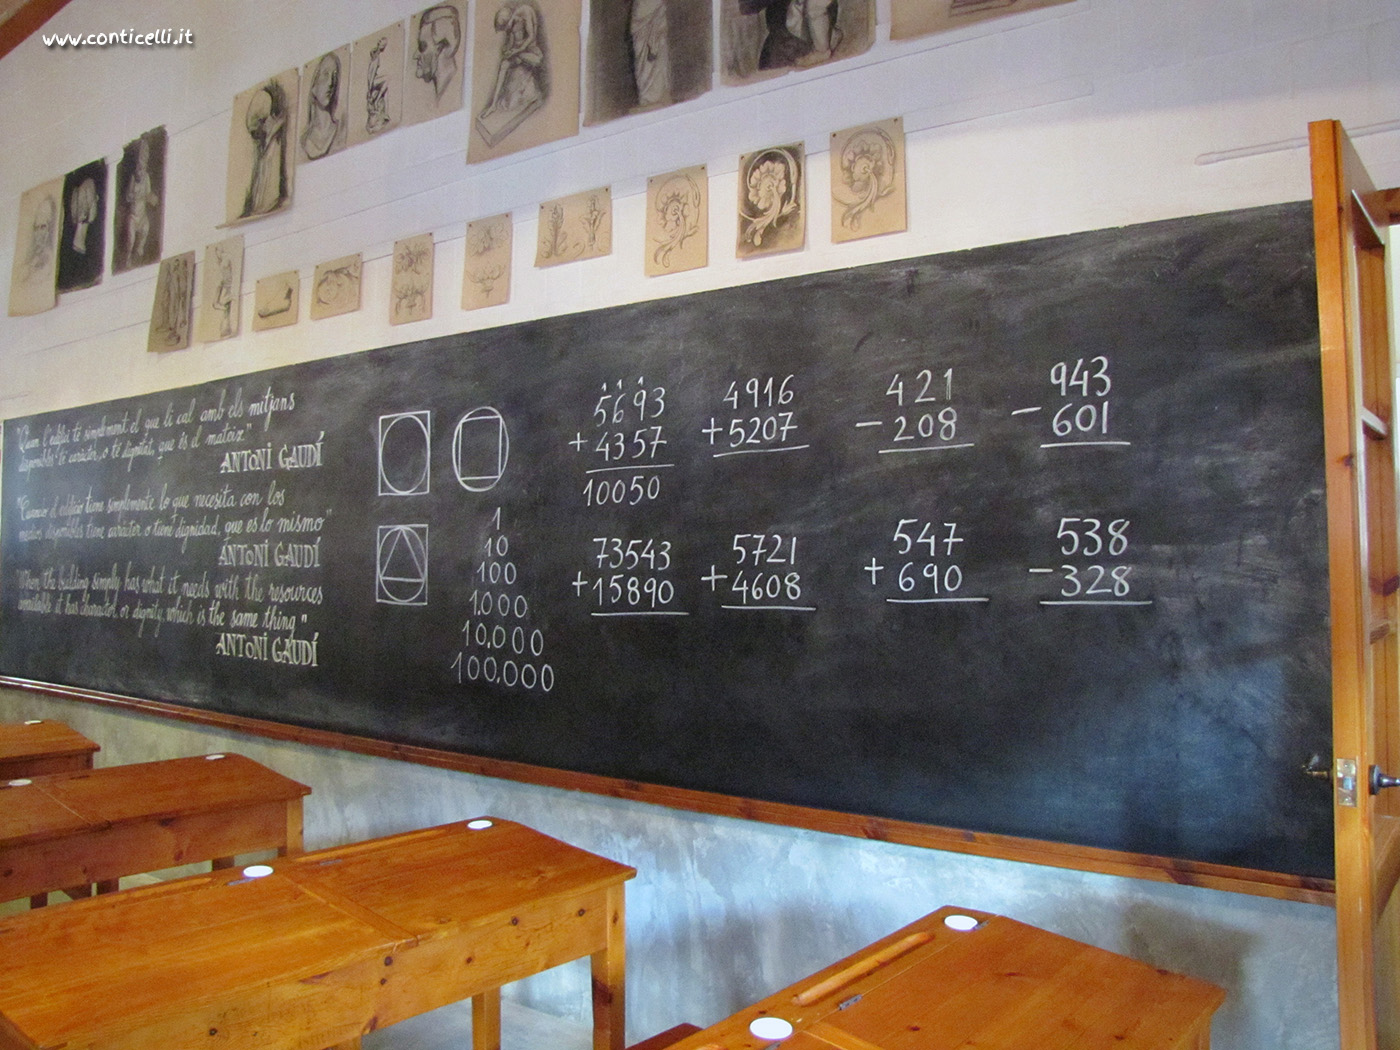 www.conticelli.it
"Quan l'edifici té simplement el que li cal amb els mitjans
disponibles té caràcter, o té dignitat, que és el mateix"
ANTONI GAUDÍ
"Cuando el edificio tiene simplemente lo que necesita con los
medios disponibles tiene carácter o tiene dignidad, que es lo mismo"
ANTONI GAUDÍ
When the building simply has what it needs with the resources
available it has character or dignity, which is the same thing"
ANTONI GAUDÍ
1
10
100
1.000
10.000
100.000
5693
+4357
10050
4916
+5207
421
-208
943
-601
73543
+15890
5721
+4608
547
+690
538
-328